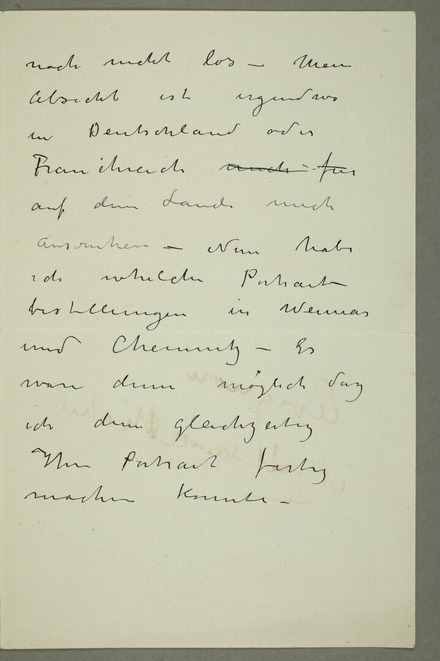 noch nicht los – Meine
Absicht ist irgendwo
in Deutschland oder
Frankreich mich für
auf dem Lande mich
ausruhen – Nun habe
ich Portrait
bestellungen in Weimar
und Chemnitz – Es
ware denn möglich dass
ich dann gleichzeitig
Ihr Portrait fertig
machen konnte –